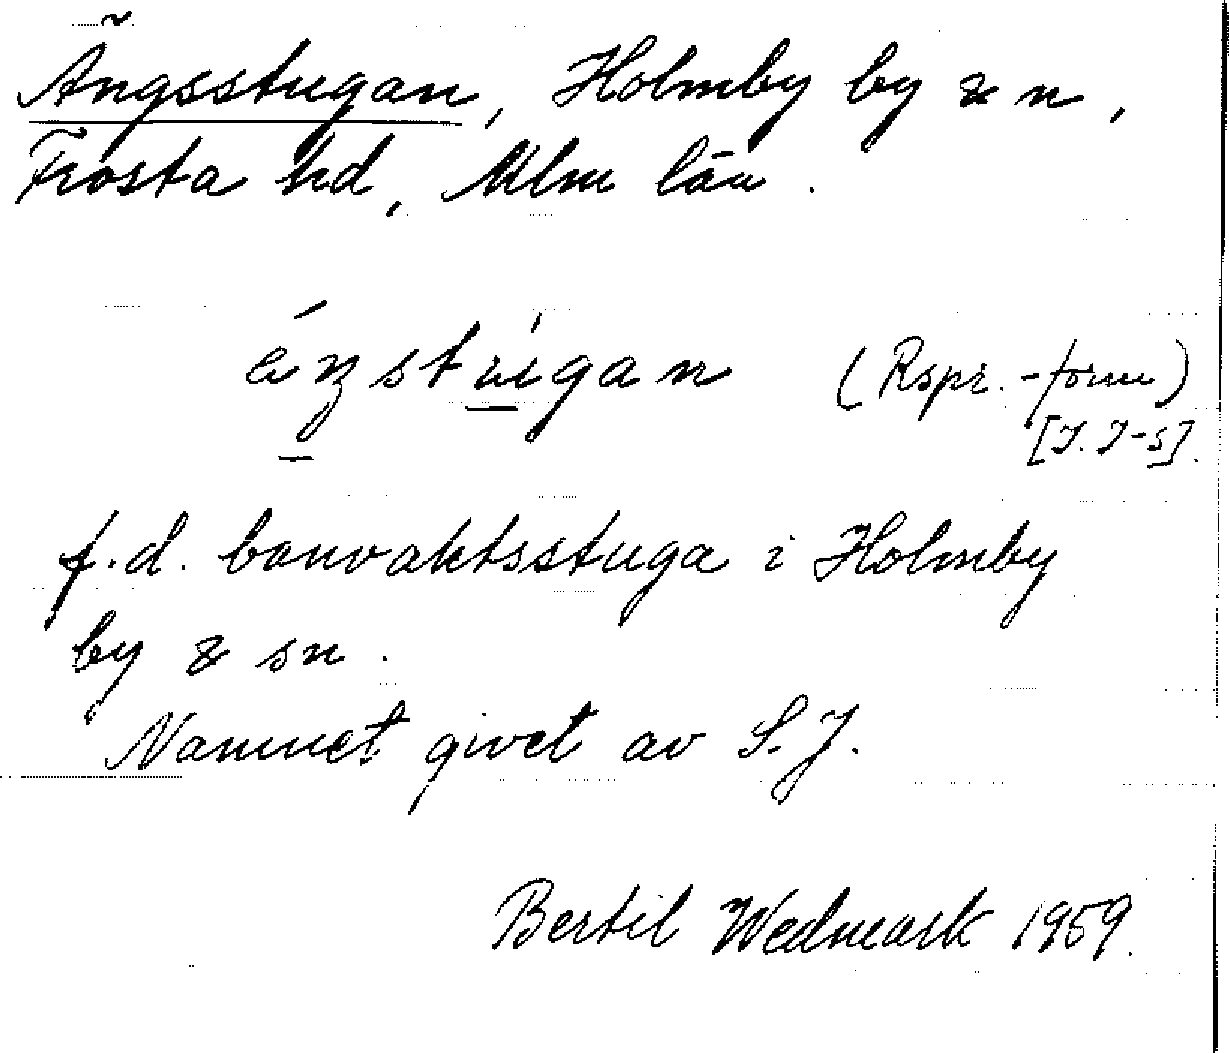 Ängsstugan, Holmby by & sn,
Frosta hd, Mlm län.
(Rspr.-form)
[J. J-s].
f.d. banvaktsstuga i Holmby
by & sn.
Namnet givet av S.J.
Bertil Wedmark 1959.